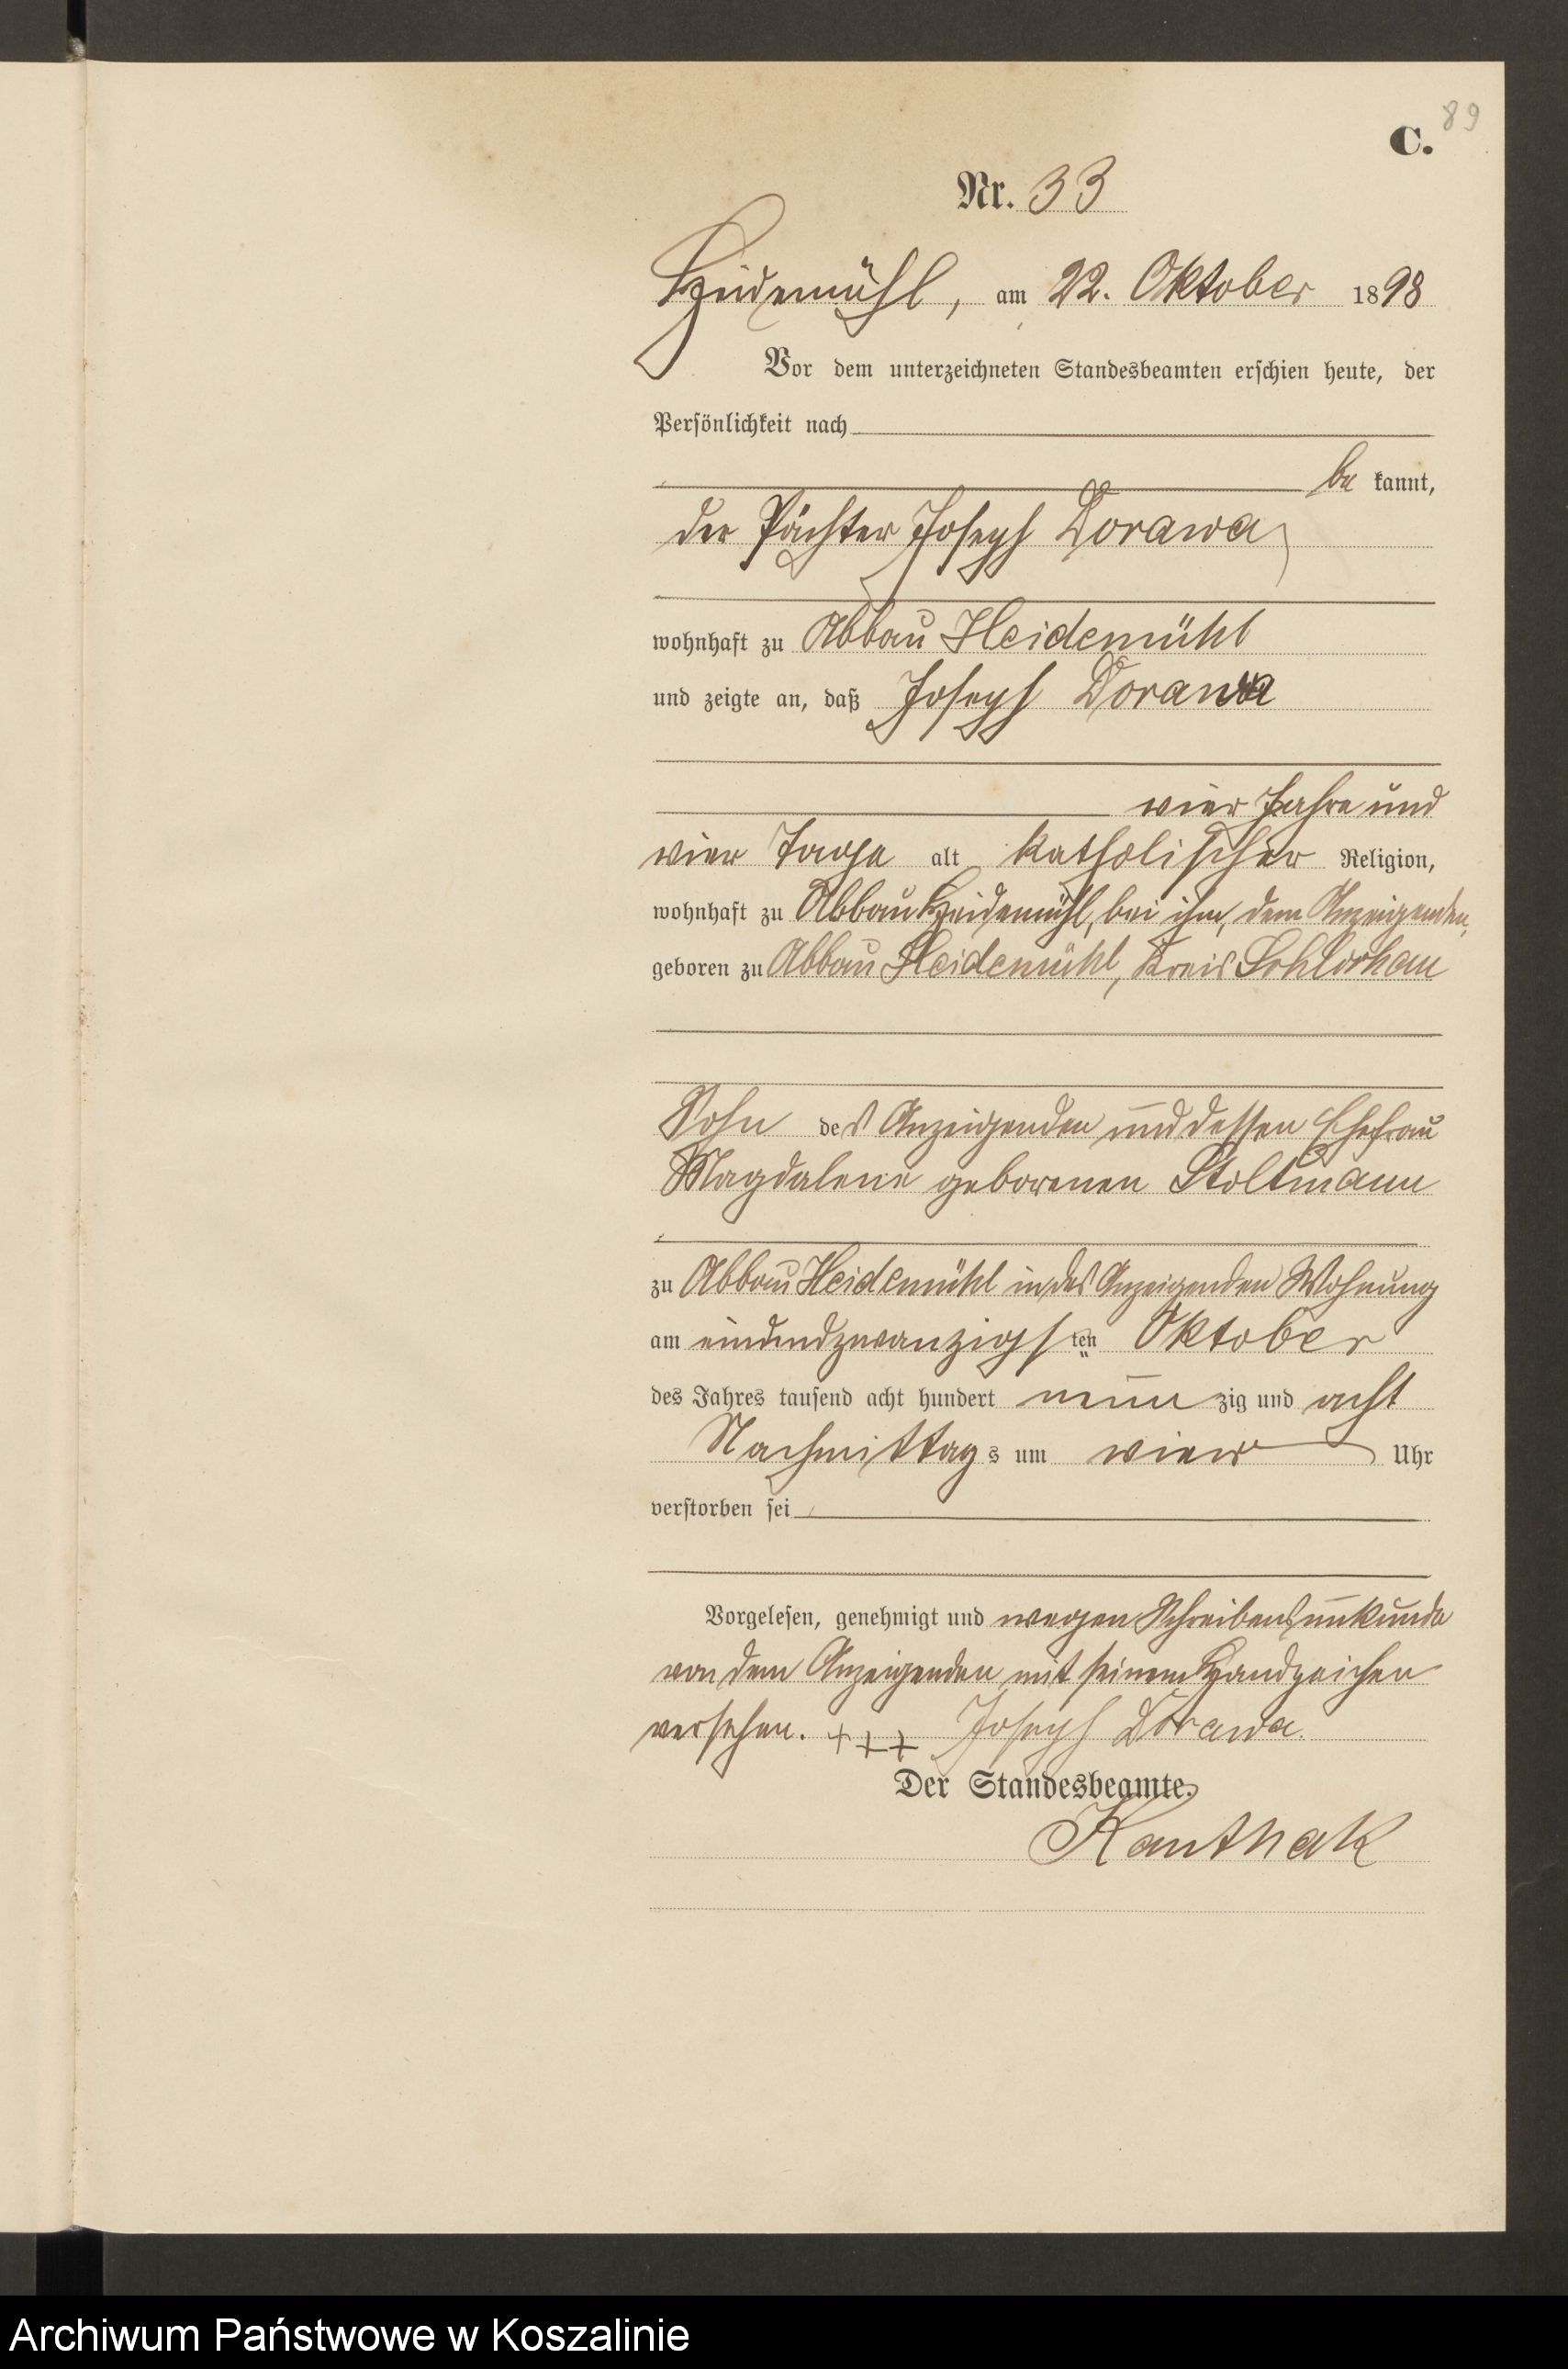 89
C.
Nr. 33
Heidemühl, am 22. Oktober 1898
Vor dem unterzeichneten Standesbeamten erschien heute, der
Persönlichkeit nach
be kannt,
der Pächter Joseph Dorawa
wohnhaft zu Abbau Heidemühl
und zeigte an, daß Joseph Dorawa
vier Jahre und
vier Tage alt katholischer Religion,
wohnhaft zu Abbau Heidemühl, bei ihm, dem Anzeigenden,
geboren zu Abbau Heidemühl, Kreis Schlochau
Sohn des Anzeigenden und dessen Ehefrau
Magdalene geborenen Stoltmann
zu Abbau Heidemühl in des Anzeigenden Wohnung
am einundzwanzigsten Oktober
des Jahres tausend acht hundert neunzig und acht
Nachmittags um vier Uhr
verstorben sei
Vorgelesen, genehmigt und wegen Schreibensunkunde
von dem Anzeigenden mit seinem Handzeichen
versehen. +++ Joseph Dorawa.
Der Standesbeamte.
Kanthak
Archiwum Państwowe w Koszalinie